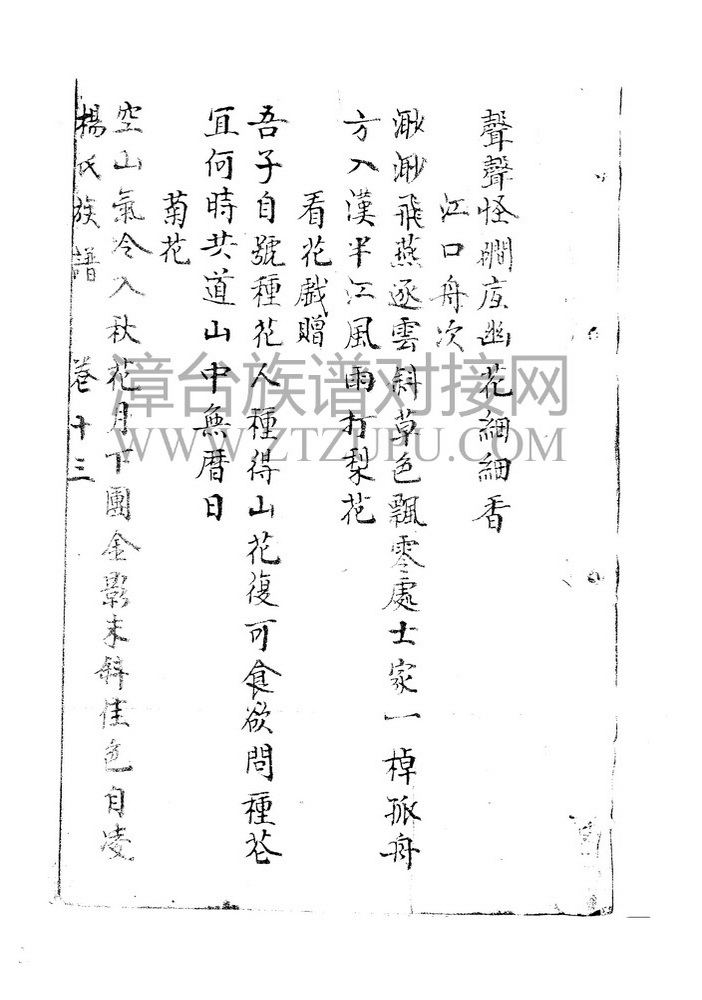 聲聲怪澗底幽花細細香
江口舟次
渺渺飛燕逐雲斜草色飄零處士家一棹孤舟
方入漢半江風雨打梨花
看花戲贈
吾子自號種花人種得山花復可食欲問種花
宜何時共道山中無曆日
菊花
空山氣冷入秋花月下團金影未斜佳色自凌
楊氏族譜 卷十三
漳台族谱对接网
WWW.ZTZUPU.COM